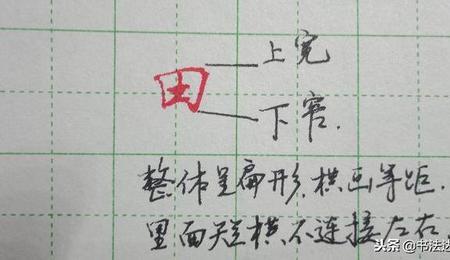 上宽
田
下窄.
整体呈扁形,横画等距.
里面短横不连接左右.
头条@书法达